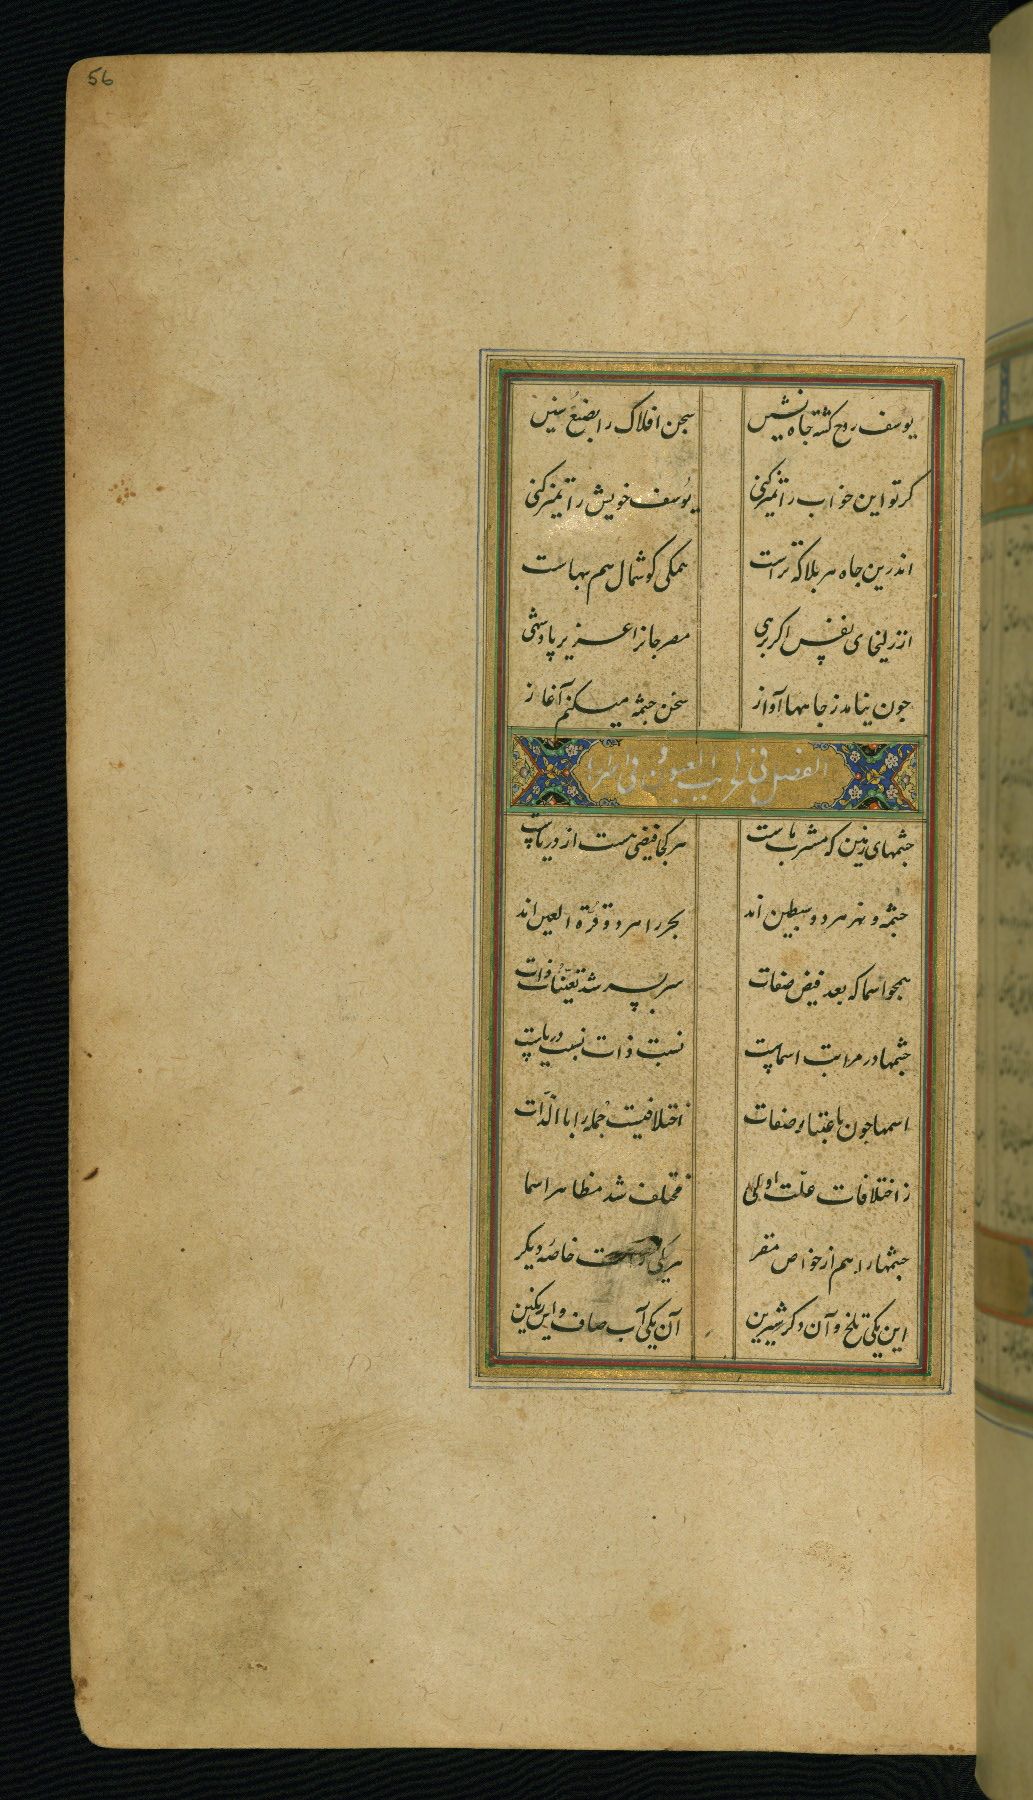 56
یوسف روح کشته جاه نشین سجن افلاک را بضع سنین
کر تو این خواب را تمیز کنی یوسف خویش را تمیز کنی
اندرین جاه هر بلا که تراست همکی کوشمال هم بهاست
از زلیخای نفس اکر برهی مصر جانرا عزیز پادشهی
جون بیامد ز جاهها آواز سخن جشمه میکنم آغاز
الفصل فی العیون
جشمهای زمین که مشرب ماست هر کجا فیضی هست از دریاست
جشمه و نهر هر دو سبطین اند بحر را هر دو قرة العین اند
همجو اسما که بعد فیض صفات سر بسر شد تعینات ذات
جشمها در مراتب اسماست نسبت ذات نسبت دریاست
اسمها جون باعتبار صفات اختلافیست جمله را با الذات
ز اختلافات علت اولی مختلف شد مظاهر اسما
جشمها را هم از خواص مقر هر یکی خاصه دیکر
این یکی تلخ و آن دکر شیرین آن یکی آب صاف و این رنکین